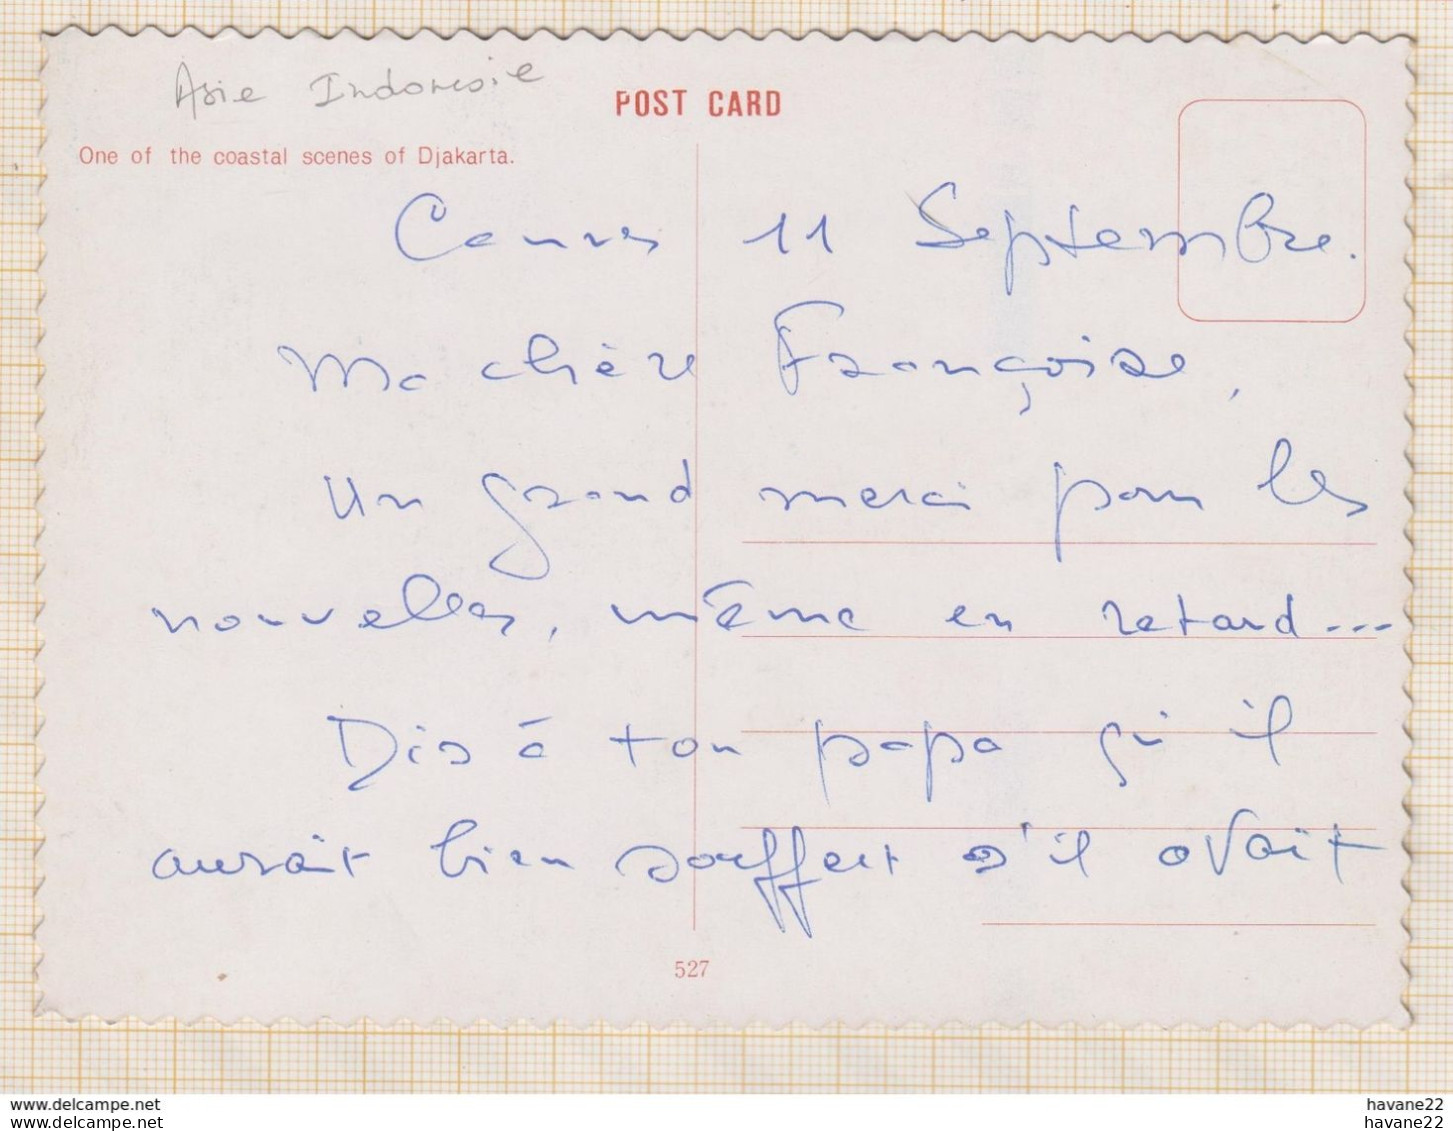 Asie Indonesie
POST CARD
One of the coastal scenes of Djakarta.
11 Septembre.
Ma chère Françoise,
Un grand merci pour les
nouvelles, même en retard...
Dis à ton papa qu'il
aurait bien souffert s'il avait
527
www.delcampe.net havane22
www.delcampe.net havane22